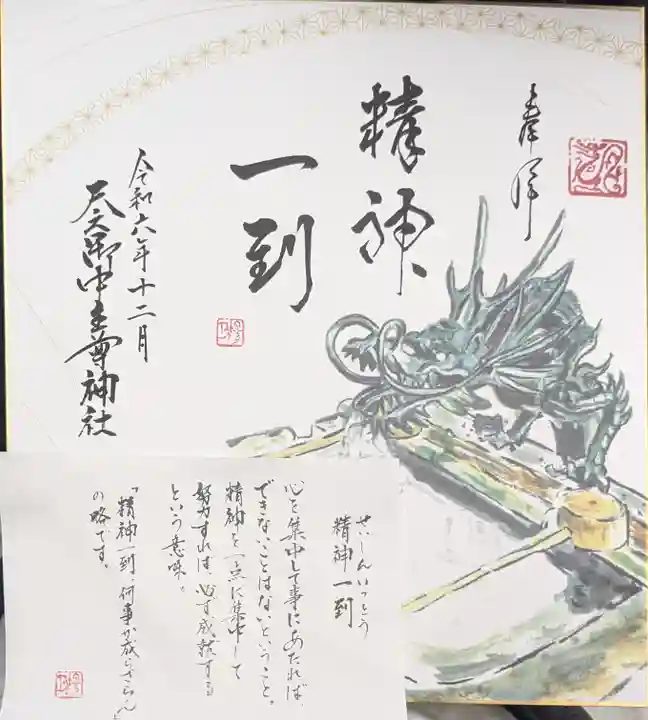 奉拝
精神
一到
令和六年十二月
天之御中主尊神社
せいしんいっとう
精神一到
心を集中して事にあたれば、
できないことはないということ。
精神を一点に集中して
努力すれば、必ず成就する
という意味。
「精神一到、何事か成らざらん」
の略です。